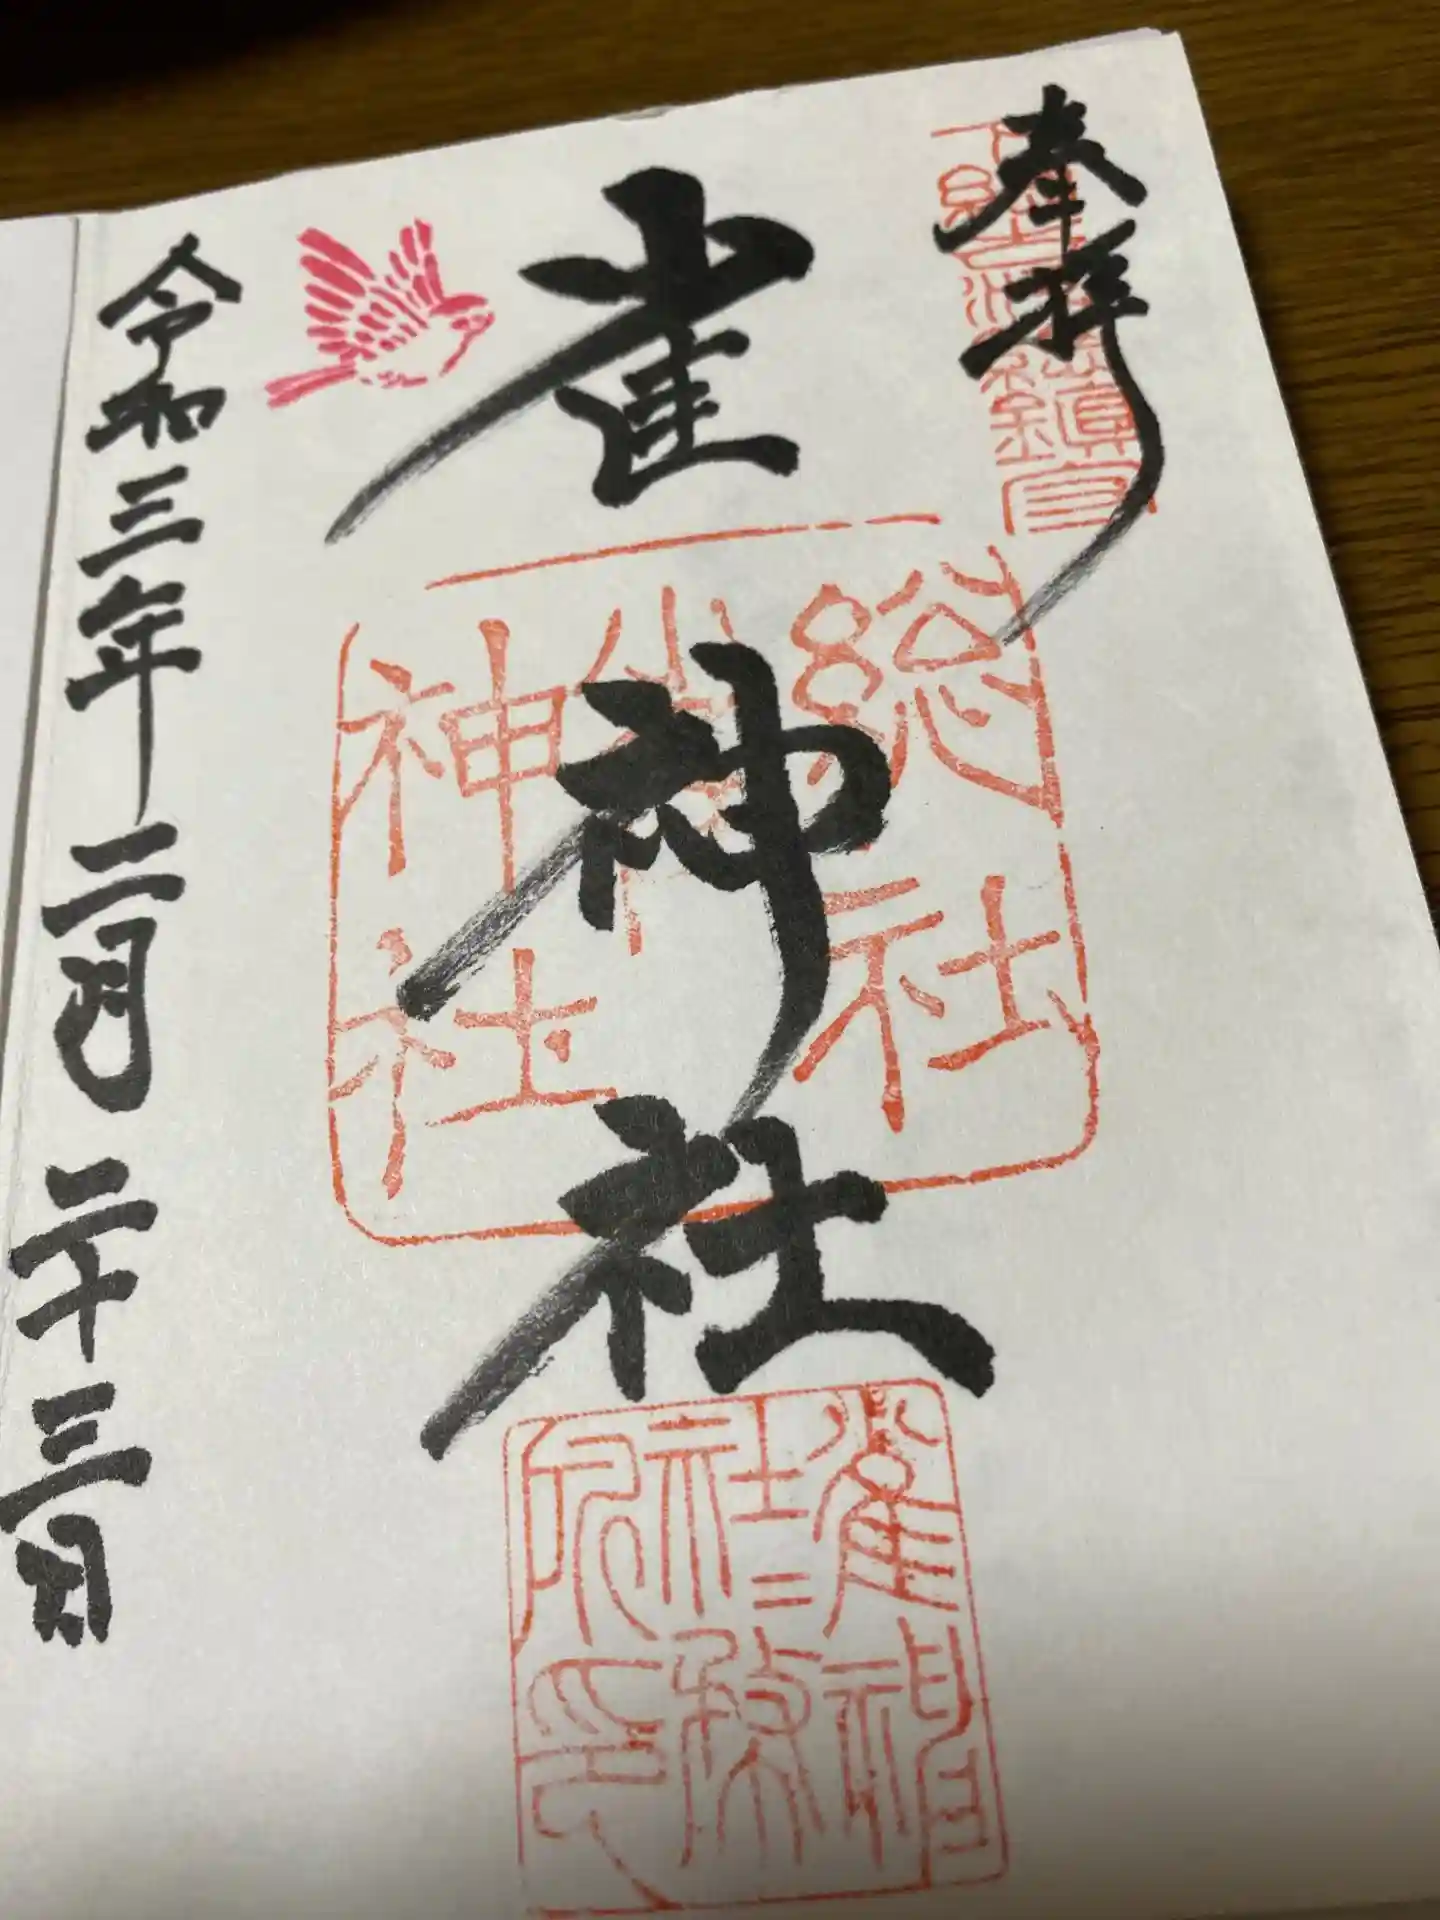 奉拝
雀神社
令和三年二月二十三日
総社
雀
神社
雀神
社
印